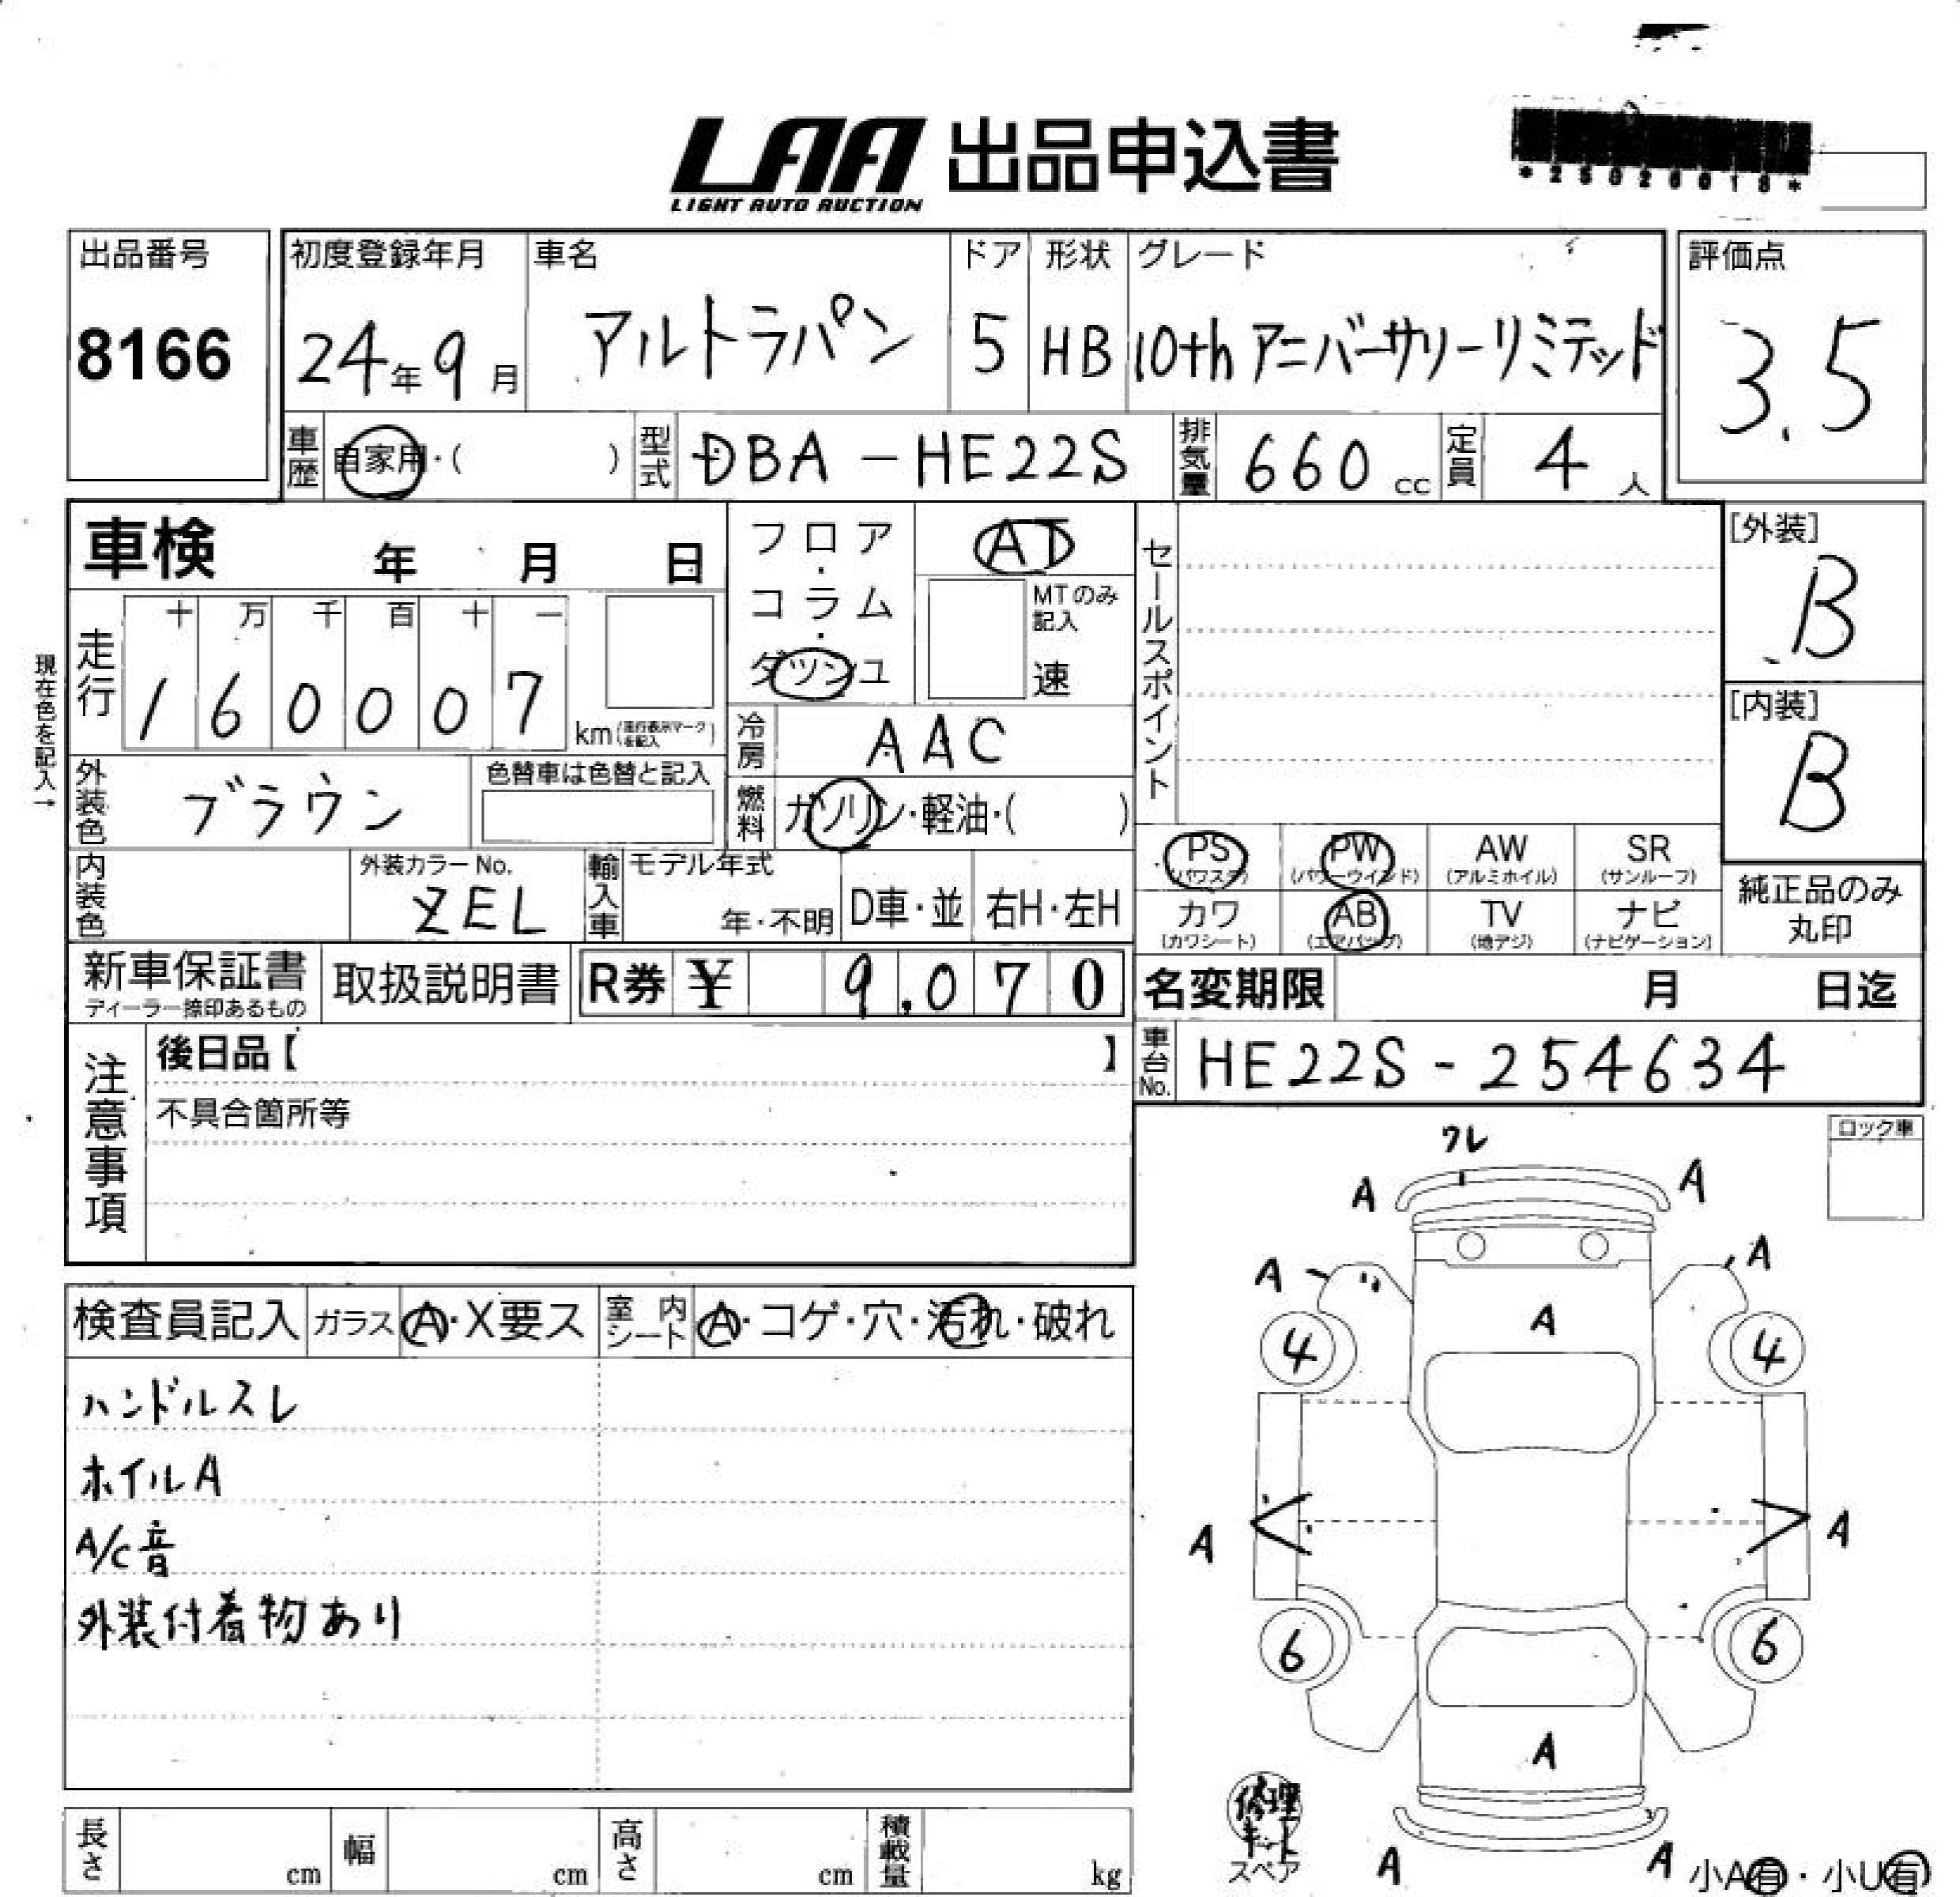 LAA 出品申込書
LIGHT AUTO AUCTION
出品番号
8166
初度登録年月
24年9月
車名
アルトラパン
ドア
5
形状
HB
グレード
10th アニバーサリーリミテッド
評価点
3.5
車歴
自家用・( )
型式
DBA-HE22S
排気量
660 cc
定員
4 人
車検 年 月 日
フロア・コラム・ダッシュ
AT
MTのみ記入
速
セールスポイント
[外装]
B
[内装]
B
現在色を記入→
走行
十 万 千 百 十 一
1 6 0 0 0 7
km(走行表示マークを記入)
冷房
AAC
外装色
ブラウン
色替車は色替と記入
燃料
ガソリン・軽油・( )
内装色
外装カラーNo.
ZEL
輸入車
モデル年式
年・不明
D車・並
右H・左H
PS (パワステ)
PW (パワーウインド)
AW (アルミホイル)
SR (サンルーフ)
カワ (カワシート)
AB (エアバッグ)
TV (地デジ)
ナビ (ナビゲーション)
純正品のみ丸印
新車保証書
ディーラー捺印あるもの
取扱説明書
R券 ¥ 9,070
名変期限 月 日迄
注意事項
後日品【 】
不具合箇所等
車台No.
HE22S-254634
ロック車
ワレ
A A
A A
A
4 4
A A
6 6
A
A A
検査員記入
ガラス
A・X要ス
室内シート
A・コゲ・穴・汚れ・破れ
ハンドルスレ
ホイルA
A/C音
外装付着物あり
修理キット
スペア
小A有・小U有
長さ cm
幅 cm
高さ cm
積載量 kg